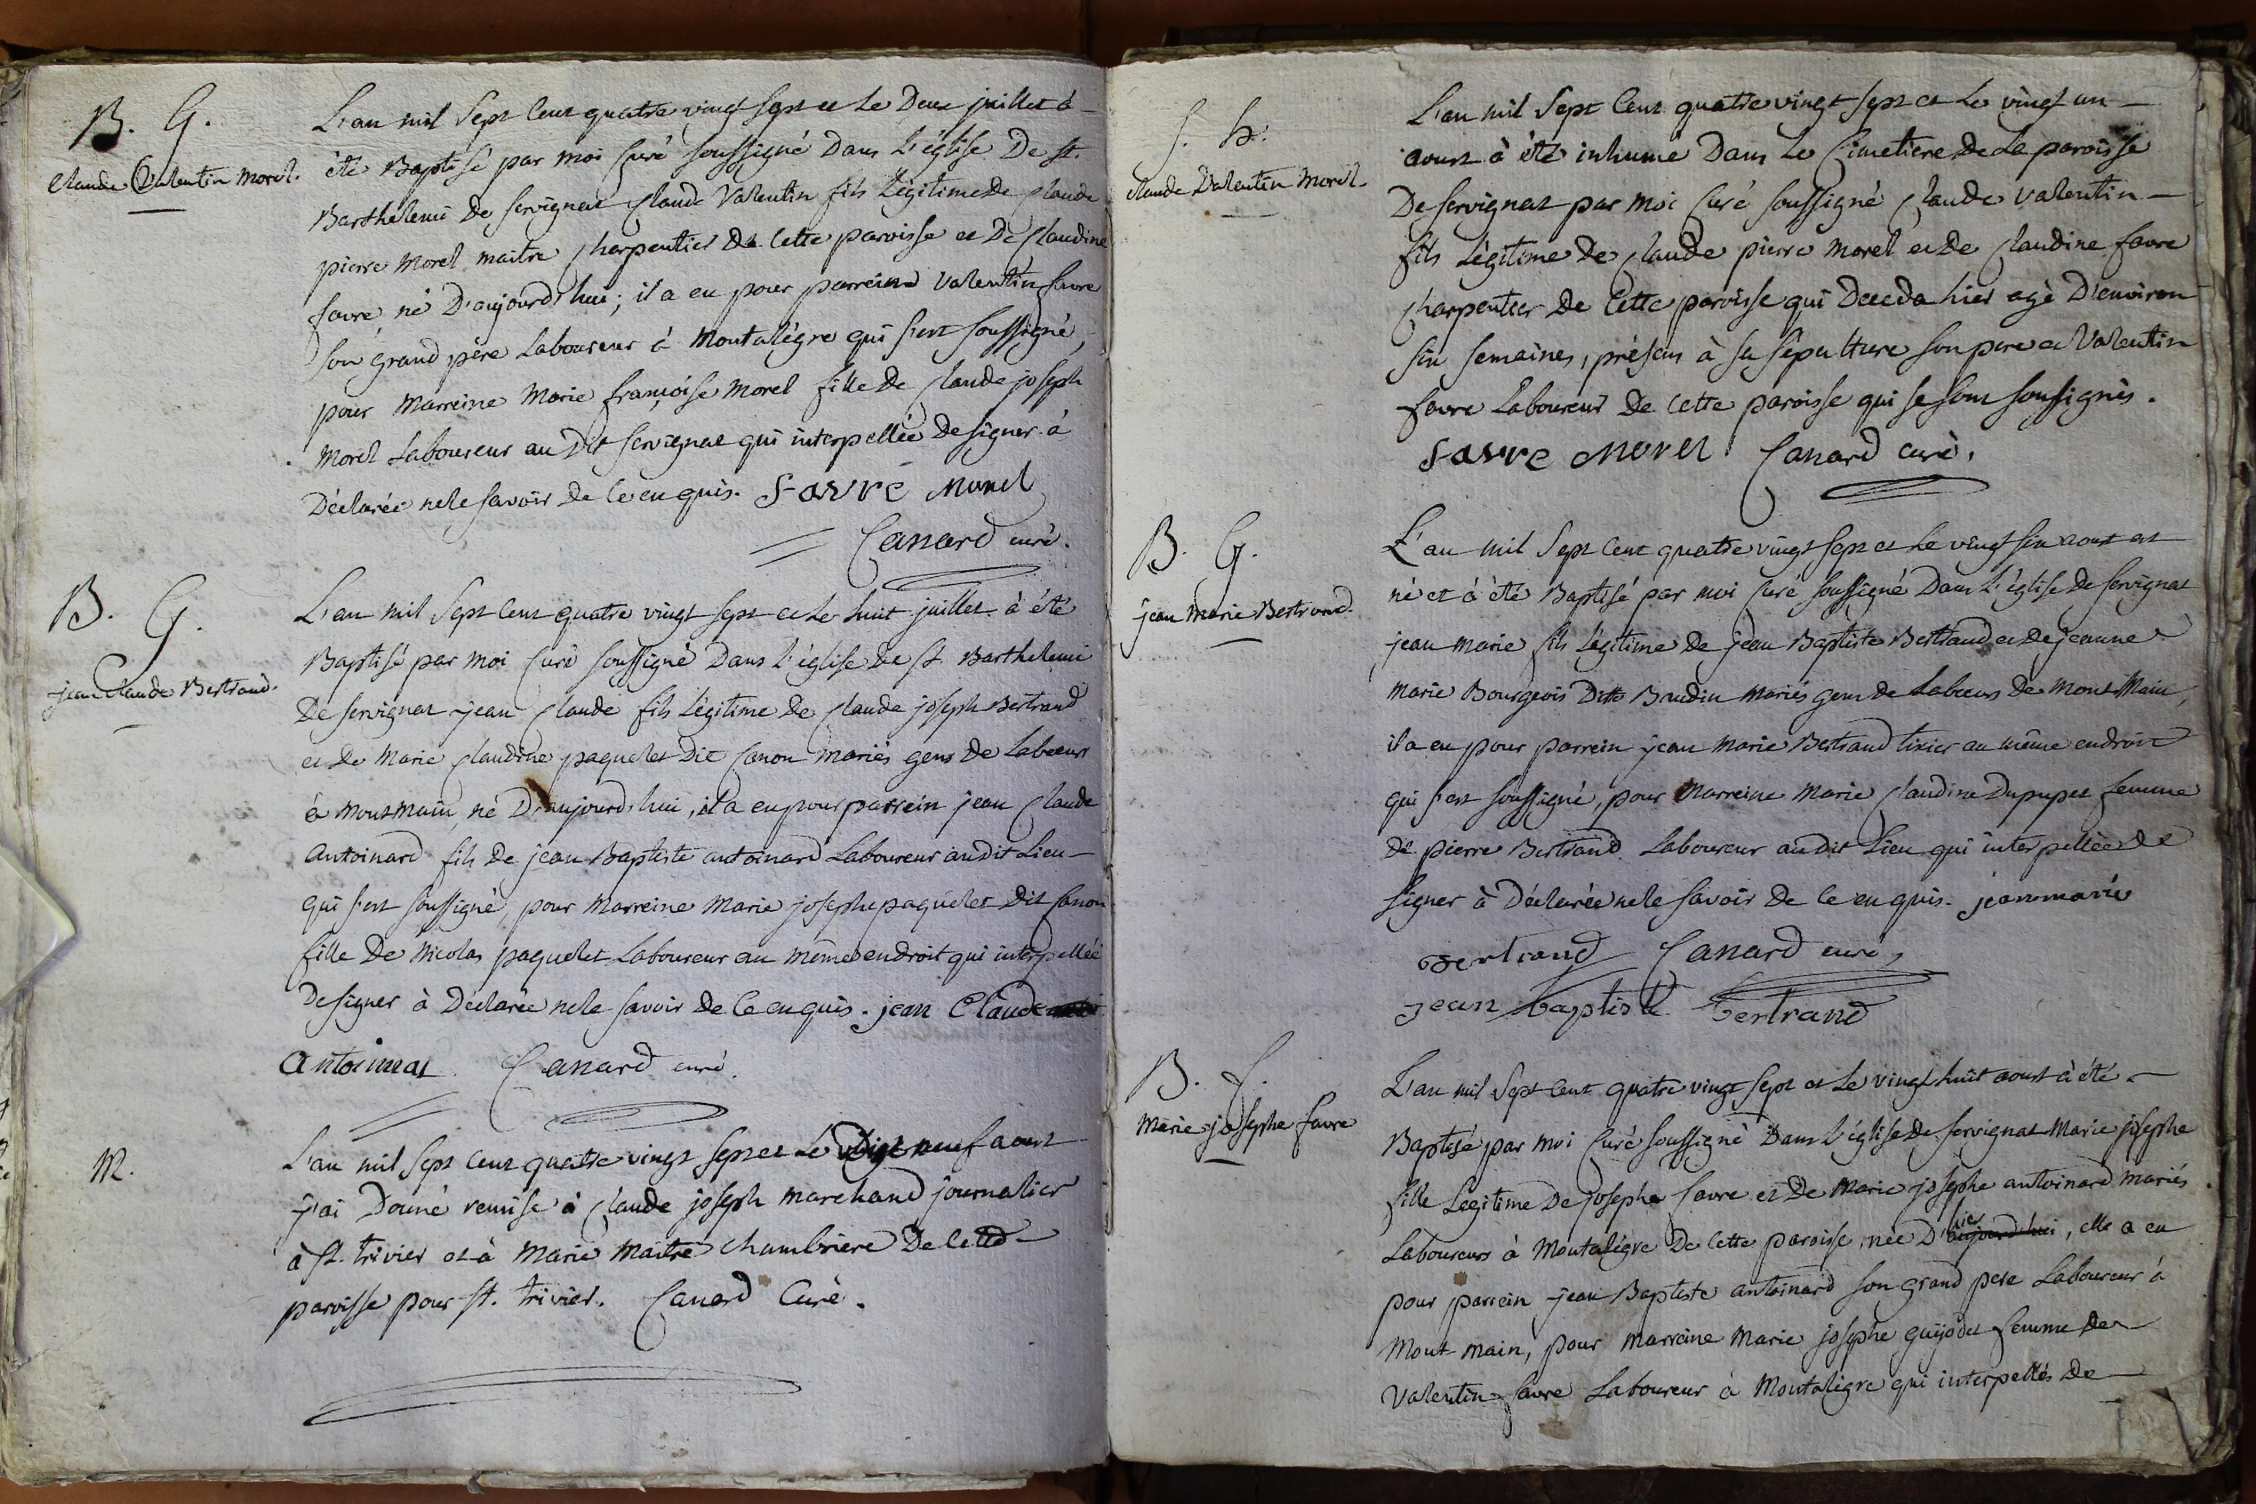 B. G.
Claude Valentin Morel.
L'an mil Sept Cent quatre vingt Sept et Le Deux juillet à
été Baptisé par moi Curé soussigné Dans L'église De St.
Barthelemi De servignat Claude Valentin fils Légitime De Claude
pierre Morel maitre Charpentier De Cette paroisse et De Claudine
favre, né D'aujourd'hui; il a eu pour parrein Valentin favre
son grand père Laboureur à Montalègre qui s'est soussigné,
pour Marreine Marie françoise Morel fille De Claude joseph
Morel Laboureur au Dit servignat qui interpellée De signer à
Déclarée ne le savoir de Ce enquis. favre Morel
Canard curé.
B. G.
jean Claude Bertrand.
L'an mil Sept Cent quatre vingt sept et Le huit juillet à été
Baptisé par moi Curé soussigné Dans L'église De St Barthelemi
De servignat jean Claude fils Légitime De Claude joseph Bertrand
et De Marie Claudine paquelet Dit Canon mariés gens de Labeur
à Montmain, né D'aujourd'hui, il a eu pour parrein jean Claude
antoinard fils De jean Baptiste antoinard Laboureur audit Lieu
qui s'est soussigné, pour Marreine Marie josephe paquelet Dit Canon
fille De Nicolas paquelet Laboureur au même endroit qui interpellée
De signer à Déclarée ne le savoir de Ce enquis. jean Claude
antoinat Canard curé.
M.
L'an mil Sept Cent quatre vingt sept et Le neuf aout
j'ai Donné remise à Claude joseph marchand journalier
à St. trivier et à Marie Maitre Chambriere De Cette
paroisse pour St. trivier. Canard Curé.
S. h.
Claude Valentin Morel.
L'an mil Sept Cent quatre vingt sept et Le vingt un
aoust à été inhumé Dans Le Cimetiere De La paroisse
De servignat par moi Curé soussigné Claude Valentin
fils Légitime De Claude pierre Morel et De Claudine favre
Charpentier De Cette paroisse qui Deceda hier agé D'environ
six semaines, présens à sa sépulture son pere et Valentin
favre Laboureur De Cette paroisse qui se sont soussignés.
favre Morel Canard curé.
B. G.
jean Marie Bertrand.
L'an mil Sept Cent quatre vingt sept et Le vingt six aoust est
né et à été Baptisé par moi Curé soussigné Dans L'église De servignat
jean Marie fils Légitime De jean Baptiste Bertrand et De jeanne
Marie Bourgeois Ditte Baudin mariés gens de Labeur De Mont Main,
il a eu pour parrein jean Marie Bertrand tixier au même endroit
qui s'est soussigné, pour Marreine Marie Claudine Dupupet femme
De pierre Bertrand Laboureur audit Lieu qui interpellée De
signer à Déclarée ne le savoir de Ce enquis. jean marie
Bertrand Canard curé,
jean Baptiste Bertrand
B. f.
Marie josephe favre
L'an mil Sept Cent quatre vingt Sept et Le vingt huit aoust à été
Baptisé par moi Curé soussigné Dans L'église De servignat Marie josephe
fille Légitime De josephe favre et De Marie josephe antoinard mariés
Laboureurs à Montalègre De Cette paroisse, née D'hier aujourd'hui, elle a eu
pour parrein jean Baptiste antoinard son grand pere Laboureur à
Mont-main, pour marreine Marie josephe guijodet femme De
Valentin favre Laboureur à Montalègre qui interpellés De